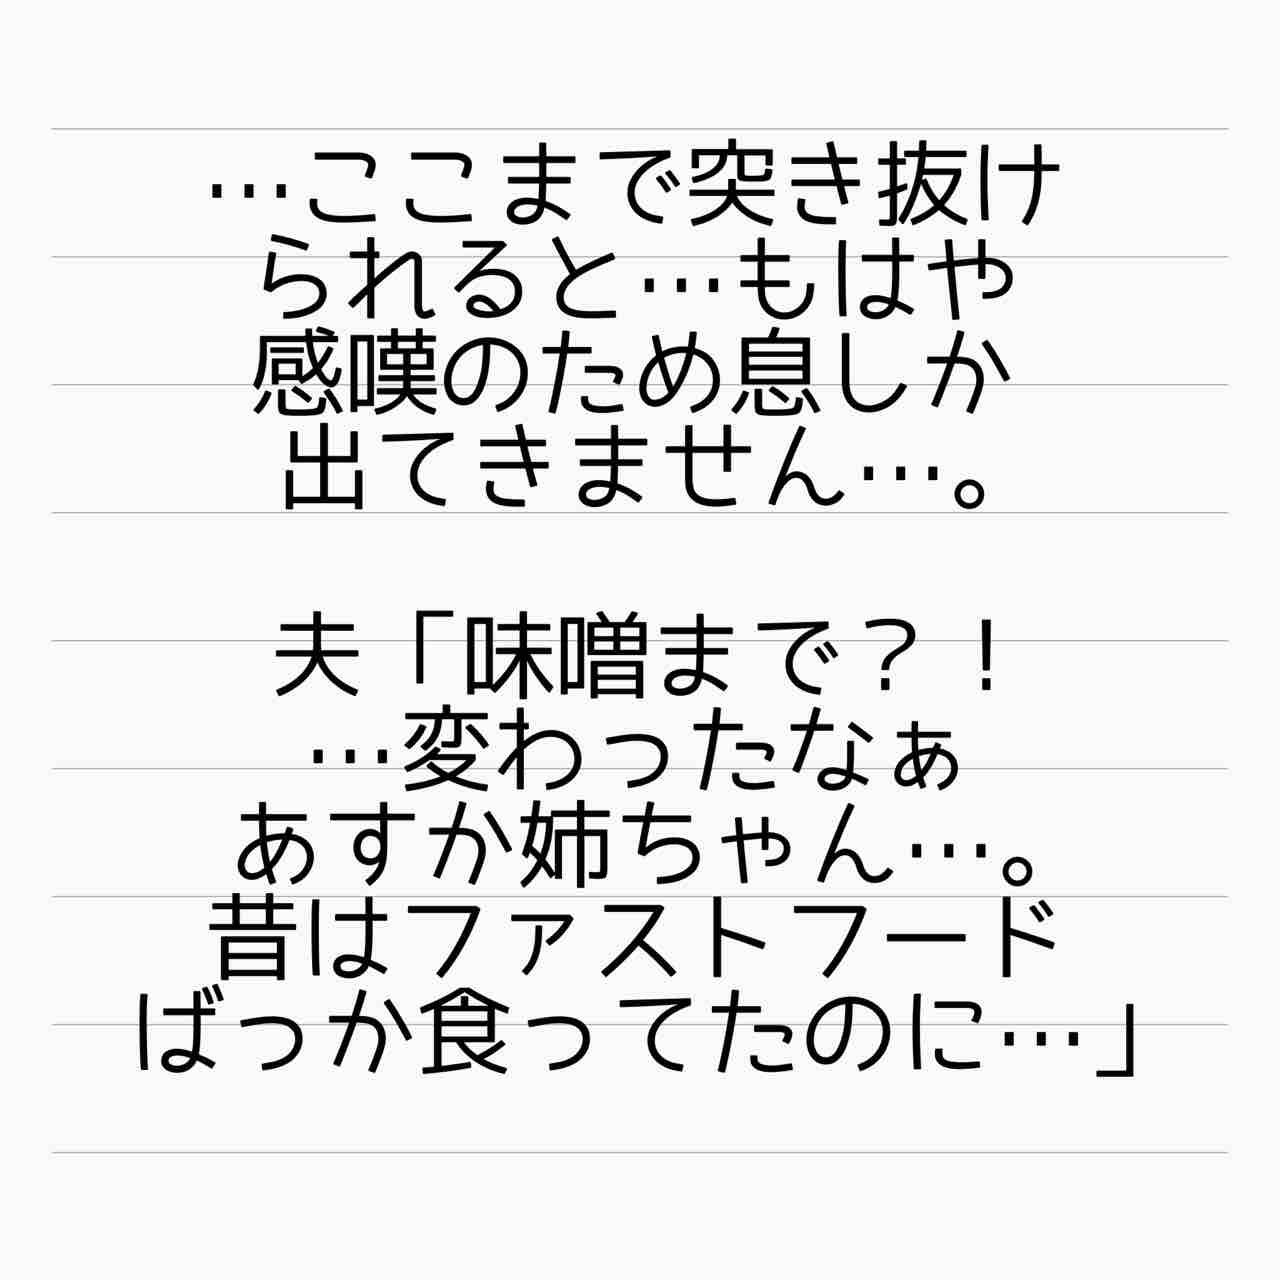 …ここまで突き抜け
られると…もはや
感嘆のため息しか
出てきません…。
夫「味噌まで？！
…変わったなぁ
あすか姉ちゃん…。
昔はファストフード
ばっか食ってたのに…」